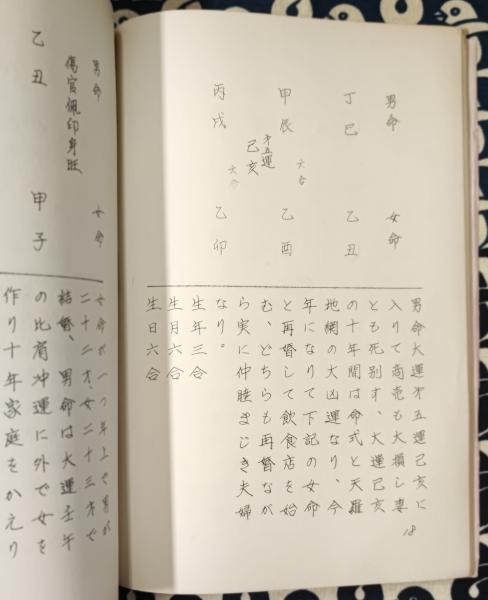 男命
女命
丁巳
乙丑
甲辰
六合
乙酉
才五運
己亥
丙戌
六合
乙卯
男命大運才五運己亥に
入りて商売も大損し妻
とも死別す、大運己亥
の十年間は命式と天羅
地網の大凶運なり、今
年になりて下記の女命
と再婚して飲食店を始
む、どちらも再婚なが
ら実に仲睦まじき夫婦
なり。
生年三合
生月六合
生日六合
18
男命
女命
傷官佩印身旺
乙丑
甲子
女命が一つ年上で男が
二十二才、女二十三才で
結婚、男命は大運壬午
の比肩冲運に外で女を
作り十年家庭をかえり